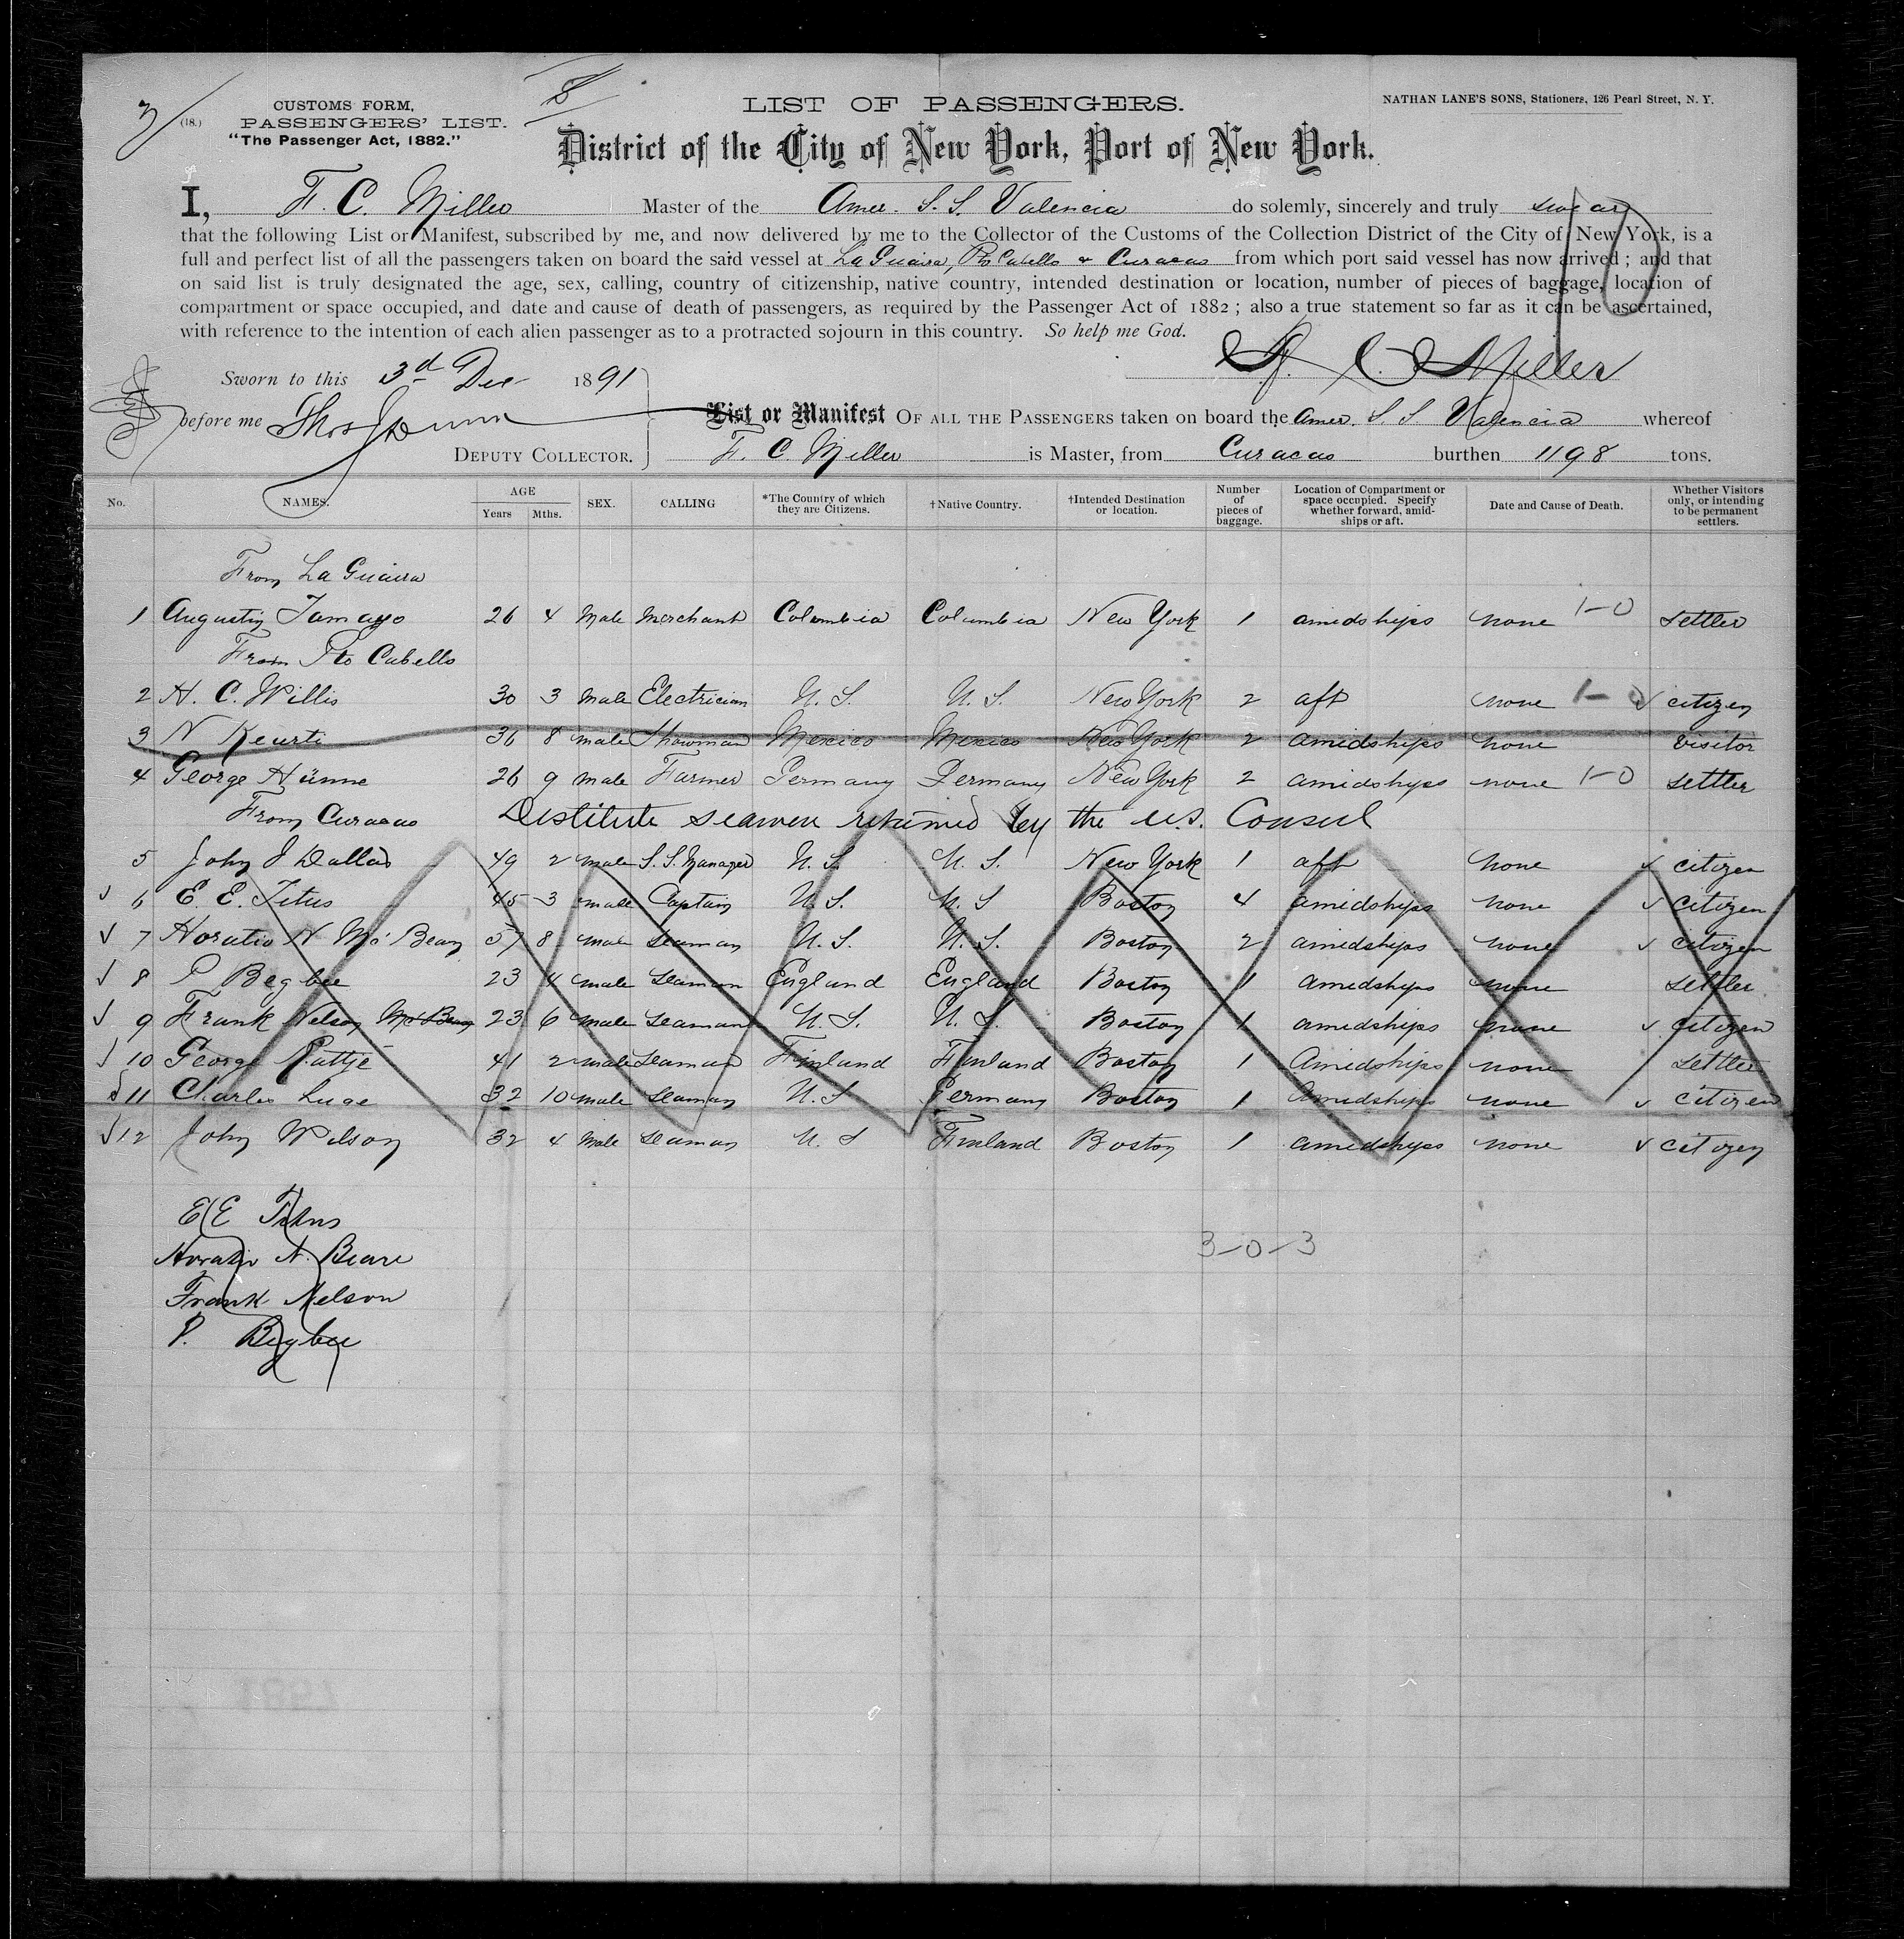 3/
(18.)
CUSTOMS FORM,
PASSENGERS' LIST.
"The Passenger Act, 1882."
LIST OF PASSENGERS.
NATHAN LANE'S SONS, Stationers, 126 Pearl Street, N. Y.
District of the City of New York, Port of New York.
I, F. C. Miller Master of the Amer. S. S. Valencia do solemly, sincerely and truly swear
that the following List or Manifest, subscribed by me, and now delivered by me to the Collector of the Customs of the Collection District of the City of New York, is a
full and perfect list of all the passengers taken on board the said vessel at La Guaira, Pto Cabello & Curacao from which port said vessel has now arrived; and that
on said list is truly designated the age, sex, calling, country of citizenship, native country, intended destination or location, number of pieces of baggage, location of
compartment or space occupied, and date and cause of death of passengers, as required by the Passenger Act of 1882; also a true statement so far as it can be ascertained,
with reference to the intention of each alien passenger as to a protracted sojourn in this country. So help me God.
F. C. Miller
Sworn to this 3d Dec 1891
before me Thos J Dunn
DEPUTY COLLECTOR.
List or Manifest OF ALL THE PASSENGERS taken on board the Amer. S. S. Valencia whereof
F. C. Miller is Master, from Curacao burthen 1198 tons.
No. NAMES. AGE Years Mths. SEX. CALLING *The Country of which they are Citizens. †Native Country. †Intended Destination or location. Number of pieces of baggage. Location of Compartment or space occupied. Specify whether forward, amidships or aft. Date and Cause of Death. Whether Visitors only, or intending to be permanent settlers.
From La Guaira
1 Augustin Tamayo 26 4 Male Merchant Colombia Columbia New York 1 amidships none 1-0 settler
From Pto Cabello
2 H. C. Willis 30 3 male Electrician U. S. U. S. New York 2 aft none 1-0 ✓ citizen
3 N Keurti 36 8 male Showman Mexico Mexico New York 2 amidships none visitor
4 George Hünne 26 9 male Farmer Germany Germany New York 2 amidships none 1-0 settler
From Curacao Destitute seamen returned by the U.S. Consul
5 John J Dallas 49 2 male S. S. Manager U. S. U. S. New York 1 aft none ✓ citizen
✓ 6 E. E. Titus 45 3 male Captain U. S. U. S Boston 4 amidships none ✓ citizen
✓ 7 Horatio N. Mc Bean 57 8 male seaman U. S. U. S. Boston 2 amidships none ✓ citizen
✓ 8 P Begbee 23 4 male seaman England England Boston 1 amidships none settler
✓ 9 Frank Nelson Mc Bean 23 6 male seaman U. S. U. S. Boston 1 amidships none ✓ citizen
✓ 10 George Pattje 41 2 male seaman Finland Finland Boston 1 Amidships none settler
✓ 11 Charles Luge 32 10 male seaman U. S Germany Boston 1 Amidships none ✓ citizen
✓ 12 John Wilson 32 4 male seaman U. S Finland Boston 1 amidships none ✓ citizen
E E Titus
Horatio N. Beane
3-0-3
Frank Nelson
P. Begbee